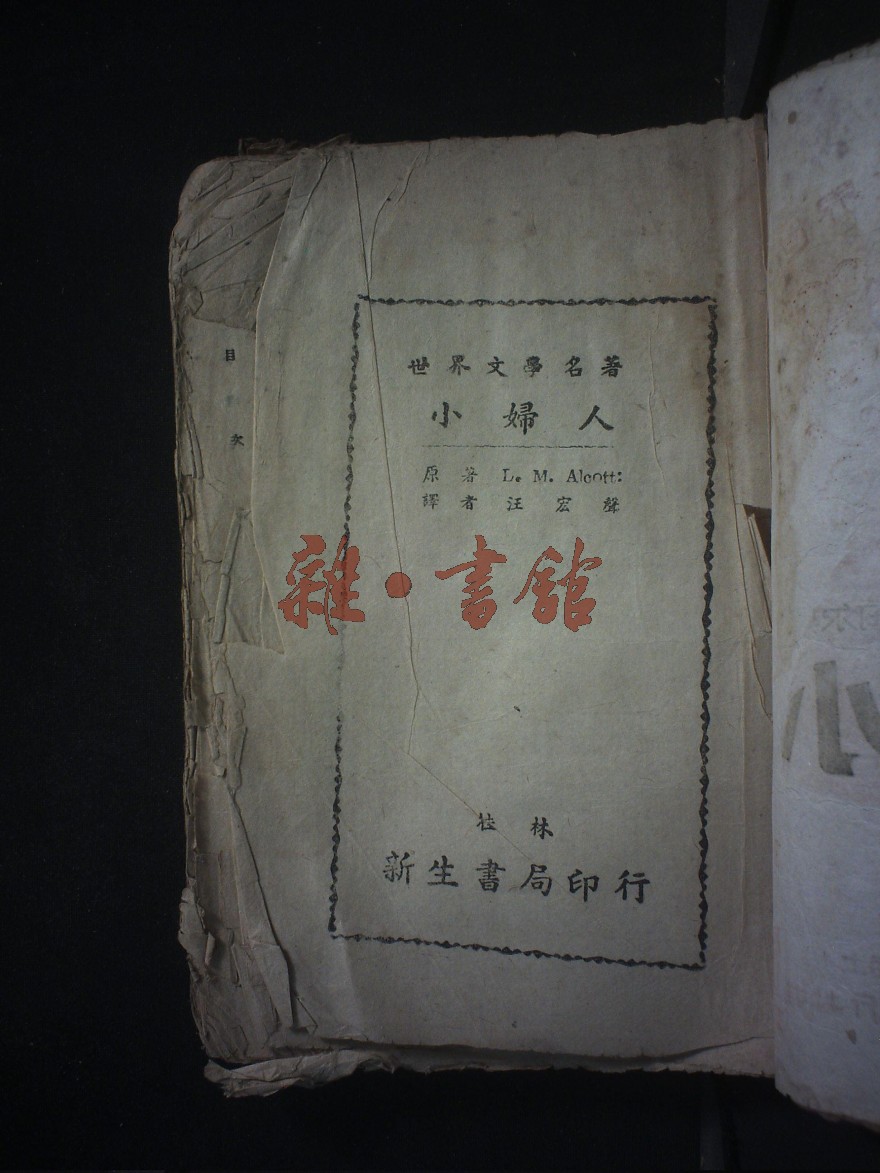 世界文學名著
小婦人
原著 L. M. Alcott:
譯者 汪宏聲
雜·書館
桂林
新生書局印行
目次
小